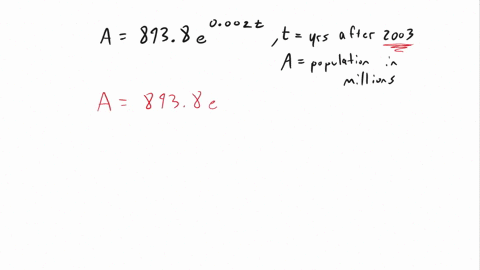 A = 893.8 e^0.002t , t = yrs after 2003
A = population in
millions
A = 893.8 e